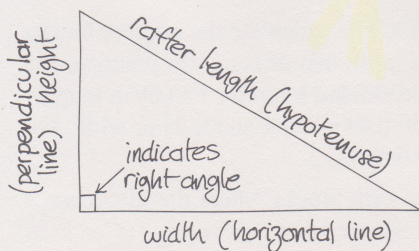 (perpendicular
line) height
rafter length (hypotenuse)
indicates
right angle
width (horizontal line)